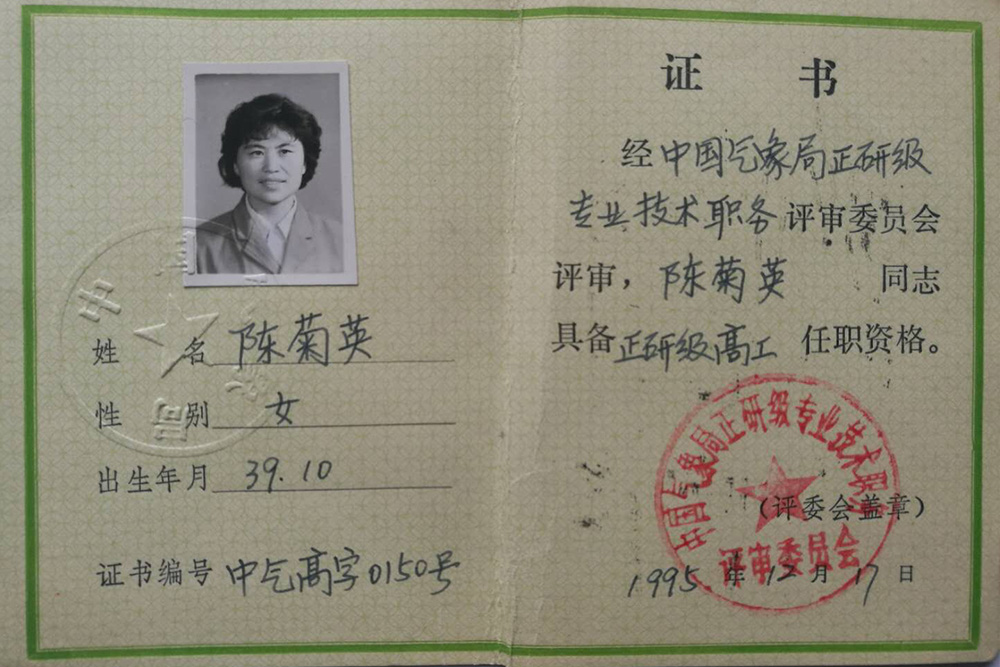 姓 名 陈菊英
性 别 女
出生年月 39.10
证书编号 中气高字0150号
证 书
经中国气象局正研级
专业技术职务评审委员会
评审，陈菊英 同志
具备正研级高工 任职资格。
中国气象局正研级专业技术职务
（评委会盖章）
评审委员会
1995 年 12 月 17 日